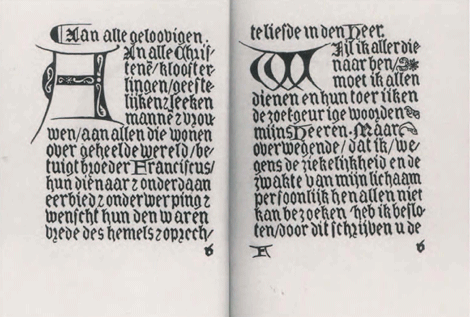 Aan alle geloovigen.
Aan alle Chris-
tenē/klooster-
lingen/geeste-
lijken ꝛ leeken
mannē ꝛ vrou
wen/aan allen die wonen
over geheel de wereld/be-
tuigt broeder Franciscus/
hun dienaar ꝛ onderdaan
eerbied ꝛ onderwerping ꝛ
wenscht hun den waren
vrede des hemels ꝛ oprech/
6
te liefde in den Heer.
Wijl ik aller die
naar ben/
moet ik allen
dienen en hun toereiken
de zoetgeurige woorden
mijns Heeren. Maar
overwegende/dat ik/we-
gens de ziekelijkheid en de
zwakte van mijn lichaam
persoonlijk hen allen niet
kan bezoeken/heb ik beslo-
ten/door dit schrijven u de
6